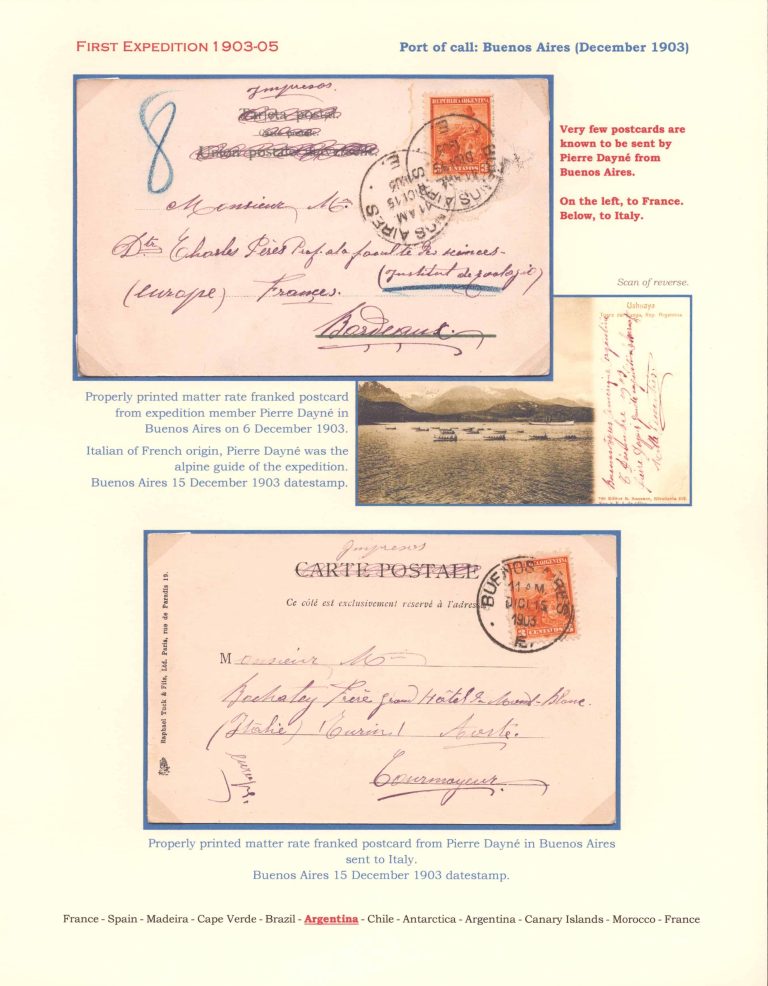 FIRST EXPEDITION 1903-05
Port of call: Buenos Aires (December 1903)
Impresos.
Tarjeta postal.
Union postale universelle.
REPUBLICA ARGENTINA
CENTAVOS
BUENOS AIRES
11 AM
DIC 15
8
Monsieur Mr
Dtr Charles Pérès Prof. a la faculté des sciences-
(Institut de zoologie)
(europe) France.
Bordeaux.
Very few postcards are
known to be sent by
Pierre Dayné from
Buenos Aires.
On the left, to France.
Below, to Italy.
Scan of reverse.
Ushuaya
Properly printed matter rate franked postcard
from expedition member Pierre Dayné in
Buenos Aires on 6 December 1903.
Italian of French origin, Pierre Dayné was the
alpine guide of the expedition.
Buenos Aires 15 December 1903 datestamp.
Impresos
CARTE POSTALE
Ce côté est exclusivement reservé à l'adresse
BUENOS AIRES
11 AM
DIC 15
1903
3 CENTAVOS
Raphael Tuck & Fils, Ltd. Paris, rue de Paradis 19.
Monsieur Mr
Bochatey Frère grand Hôtel du Mont-Blanc.
(Italie) Turin Aoste.
Europe.
Courmayeur.
Properly printed matter rate franked postcard from Pierre Dayné in Buenos Aires
sent to Italy.
Buenos Aires 15 December 1903 datestamp.
France - Spain - Madeira - Cape Verde - Brazil - Argentina - Chile - Antarctica - Argentina - Canary Islands - Morocco - France